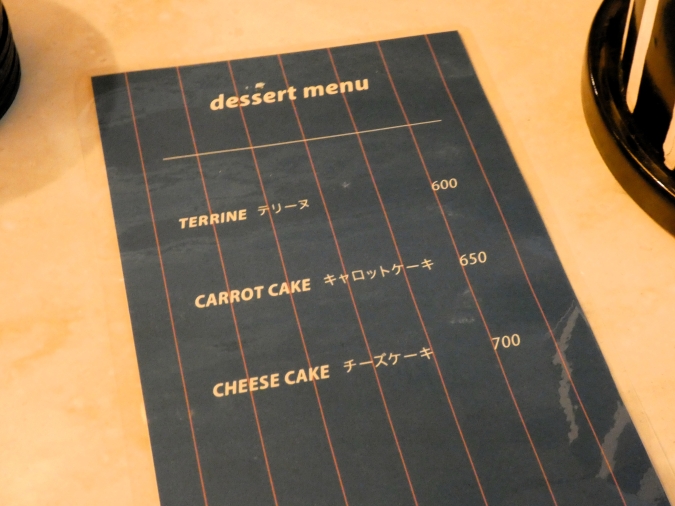 dessert menu
TERRINE テリーヌ 600
CARROT CAKE キャロットケーキ 650
CHEESE CAKE チーズケーキ 700